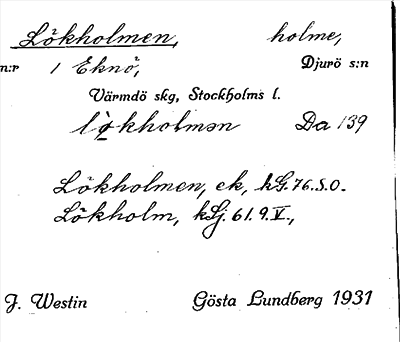 Lökholmen, holme,
n:r 1 Eknö, Djurö s:n
Värmdö skg, Stockholms l.
lø̀kholmən Da 139
Lökholmen, ek, kG. 76. S.O.
Lökholm, kLj. 61. 9. V.,
J. Westin Gösta Lundberg 1931